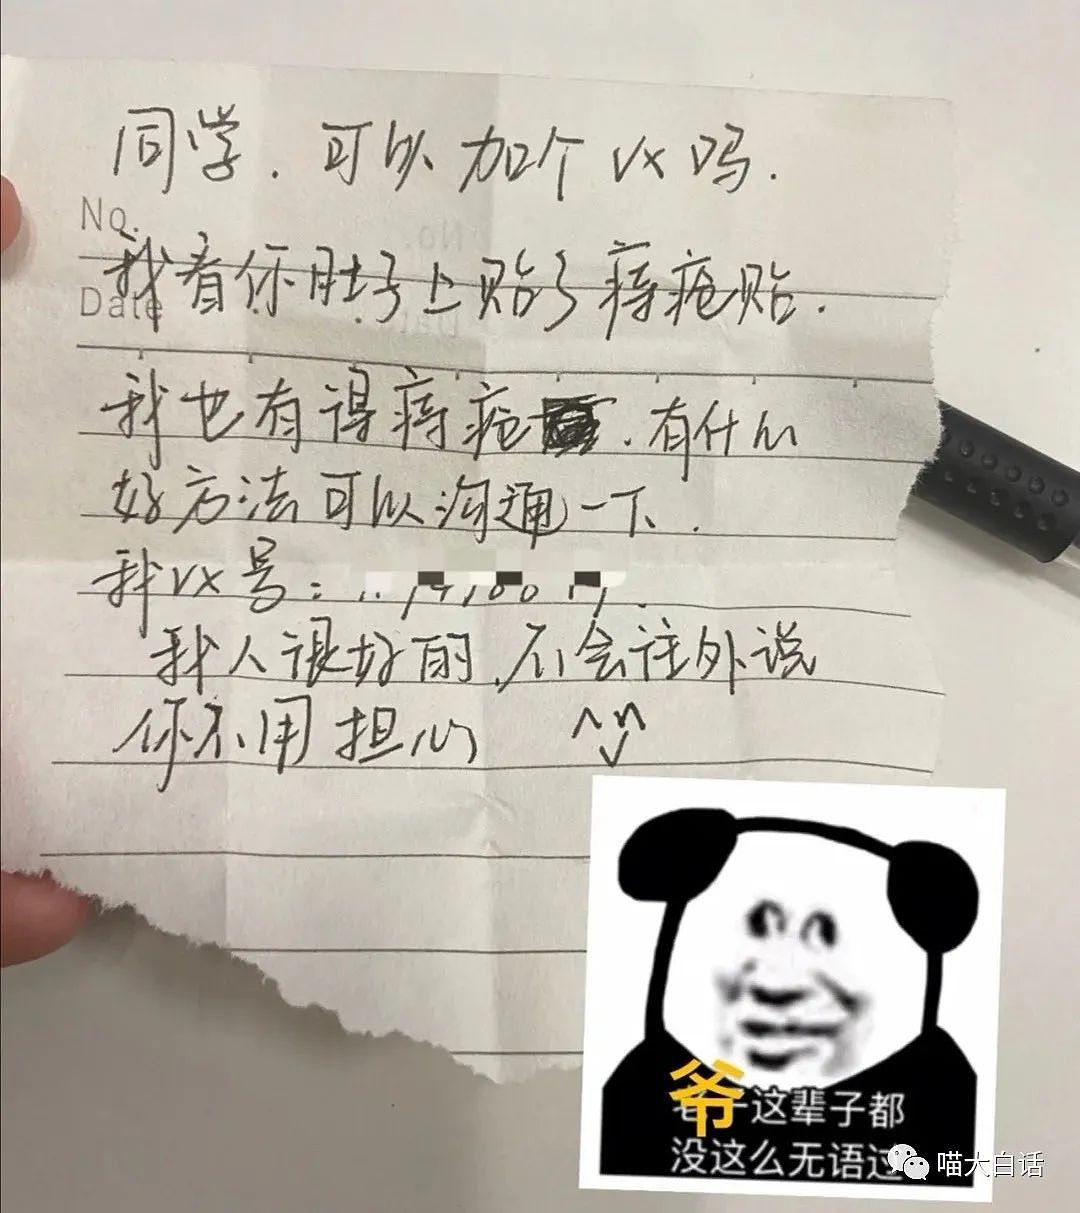 同学.可以加个vx吗.
No.
我看你肚子上贴了痔疮贴.
Date
我也有得痔疮.有什么
好方法可以沟通一下.
我vx号:
我人很好的,不会往外说
你不用担心
爷 这辈子都
没这么无语过
喵大白话